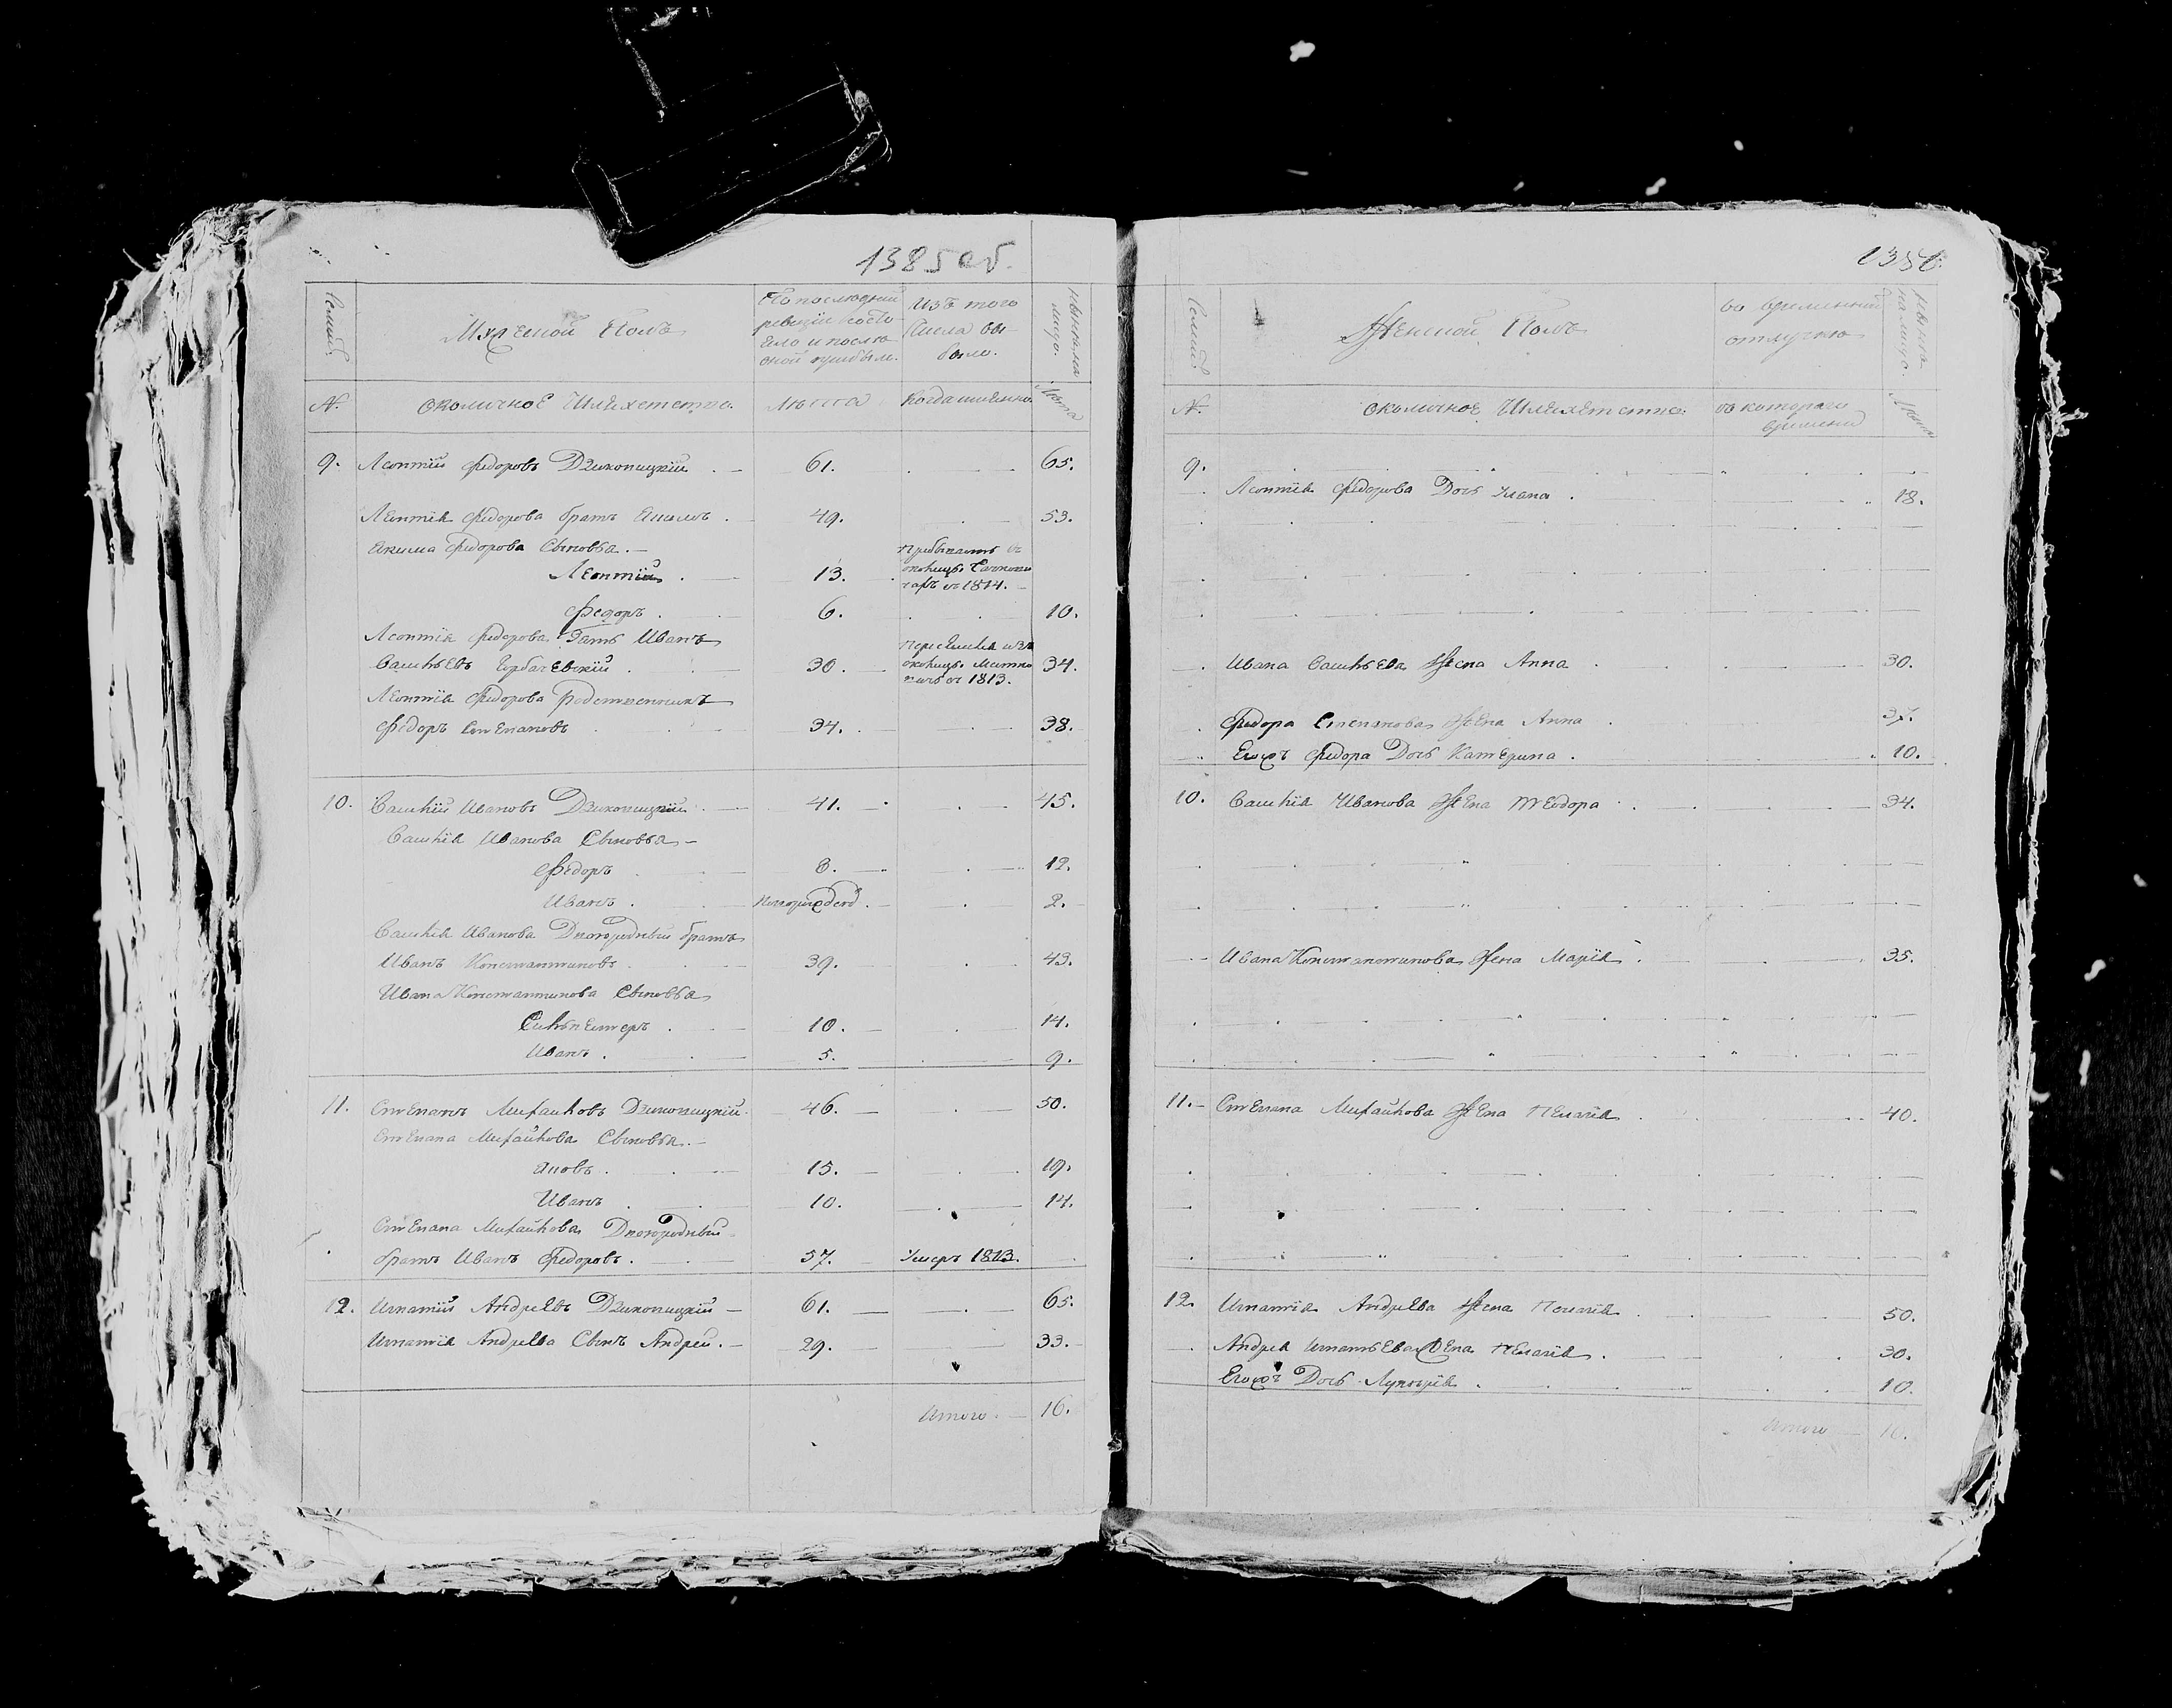 1385 об.
Семьи
Мужеской Полъ
По последней
ревизіи состо
яло и после
оной прибыло.
Изъ того
Числа вы
было.
Ныне на
лицо.
№.
Околичное Шляхетство.
Лѣта
Когда именно
Лѣта
9. Леонтій Федоровъ Дзиковицкій 61. 65.
Леонтія Федорова братъ Якимъ 49. 53.
Якима Федорова Сыновья.
Леонтій 13. Пребываетъ въ
околицѣ
съ 1814.
Федоръ 6. 10.
Леонтія Федорова Зять Иванъ
Васильевъ Горбачевскій 30. Переехал изъ
околицы
въ 1813. 34.
Леонтія Федорова родственникъ
Федоръ Степановъ 34. 38.
10. Василій Ивановъ Дзиковицкій 41. 45.
Василія Иванова Сыновья
Федоръ 8. 12.
Иванъ новорожден. 2.
Василія Иванова Двоюродный братъ
Иванъ Константиновъ 39. 43.
Ивана Константинова Сыновья
Сильвестеръ 10. 14.
Иванъ 5. 9.
11. Степанъ Михайловъ Дзиковицкій 46. 50.
Степана Михайлова Сыновья
Яковъ 15. 19.
Иванъ 10. 14.
Степана Михайлова Двоюродный
братъ Иванъ Федоровъ 57. Умеръ 1813.
12. Игнатій Андреевъ Дзиковицкій 61. 65.
Игнатія Андреева Сынъ Андрей 29. 33.
Итого 16.
1386.
Семьи
Женской Полъ
во временной
отлучке
Ныне
на лицо.
№.
Околичное Шляхетство
съ котораго
времени
Лѣта
9.
Леонтія Федорова Дочь 18.
Ивана Васильева Жена Анна 30.
Федора Степанова Жена Анна
Егожъ Федора Дочь Катерина 10.
10. Василія Иванова Жена Теодора 34.
Ивана Константинова Жена Марія 35.
11. Степана Михайлова Жена Пелагія 40.
12. Игнатія Андреева Жена Пелагія 50.
Андрея Игнатьева Жена Пелагія 30.
Егожъ Дочь Лукерія 10.
Итого 10.